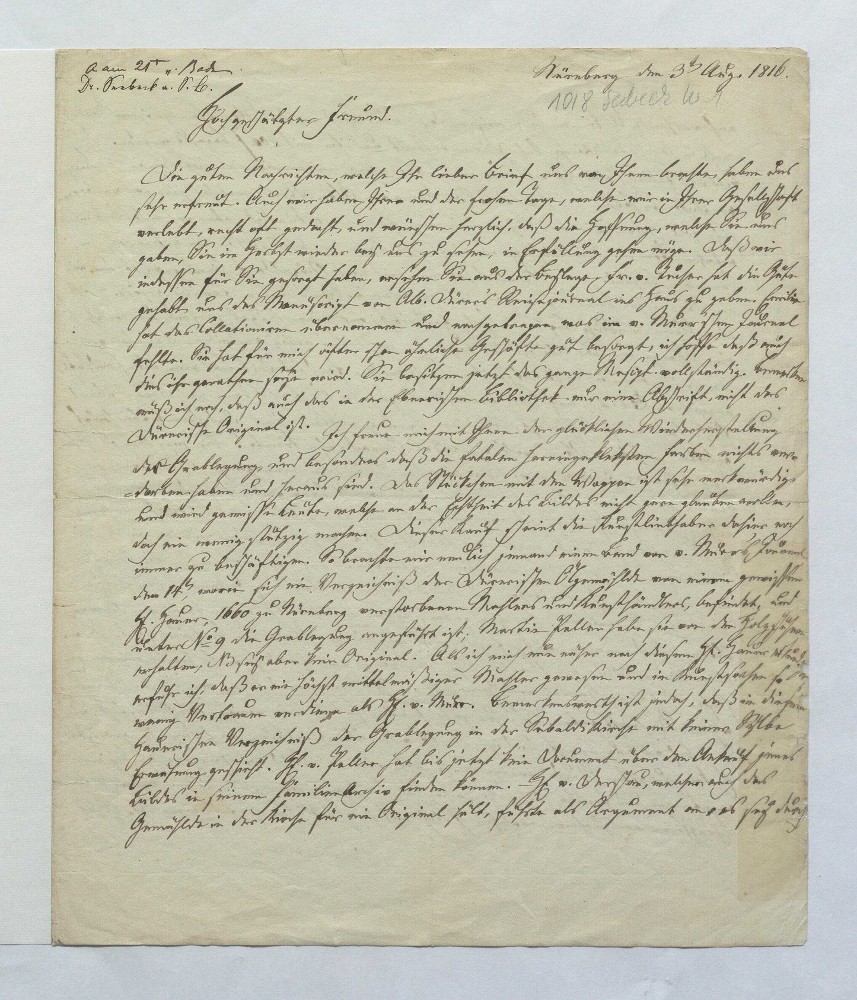 a am 21t v. Bode
Dr. Seebeck u. S. B.
Nürnberg den 3t Aug. 1816.
1018 Seebeck No 1
Hochgeschätzter Freund.
Die guten Nachrichten, welche Ihr lieber Brief uns von Ihnen brachte, haben uns
sehr erfreut. Auch wir haben Ihrer und der frohen Tage, welche wir in Ihrer Gesellschaft
verlebt, recht oft gedacht, und wünschen herzlich, daß die Hoffnung, welche Sie uns
gaben, Sie im Herbst wieder bey uns zu sehen, in Erfüllung gehen möge. Daß wir
indessen für Sie gesorgt haben, ersehen Sie aus der Beylage. Hr. v. Tucher hat die Güte
gehabt uns das Manuscript von Alb. Dürers Reisejournal ins Haus zu geben. Emilie
hat das Collationiren übernommen und nachgetragen was im v. Murrschen Journal
fehlte. Sie hat für mich öfter schon ähnliche Geschäfte gut besorgt, ich hoffe daß auch
dies ihr gerathen seyn wird. Sie besitzen jetzt das ganze Mscpt vollständig. Bemerken
muß ich noch, daß auch das in der Ebnerischen Bibliothek nur eine Abschrift, nicht das
Dürerische Original ist. Ich freue mich mit Ihnen der glücklichen Wiederherstellung
der Grablegung, und besonders daß die fatalen hereingeklecksten Farben nichts ver-
dorben haben und heraus sind. Das Stückchen mit dem Wappen ist sehr merkwürdig
und wird gewisse Leute, welche an der Echtheit des Bildes nicht gern glauben wollen,
doch ein wenig stutzig machen. Dieser Kauf scheint die Kunstliebhaber dahier noch
immer zu beschäftigen. So brachte mir neulich jemand einen Band von v. Murr's Journal
den 14t worin sich ein Verzeichniß der Dürerischen Ölgemählde von einem gewissen
H. Hauer, 1660 zu Nürnberg verstorbenen Mahlers und Kunsthändlers, befindet, und
unter No 9 die Grablegung angeführt ist; Martin Peller habe sie von den Holzschuhern
erhalten, NB sey aber kein Original. Als ich mich nun näher nach diesem H. Hauer
erfuhr ich, daß er ein höchst mittelmäßiger Mahler gewesen und in Kunstsachen so
wenig Vertrauen verdiene als H. v. Murr. Bemerkenswerth ist jedoch, daß in diesem
Hauerischen Verzeichniß der Grablegung in der Sebaldikirche mit keiner Sylbe
Erwähnung geschieht. H. v. Peller hat bis jetzt kein Document über den Ankauf jenes
Bildes in seinem Familien Archiv finden können. H. v. Derschau, welcher auch das
Gemählde in der Kirche für ein Original hält, führte als Argument an, es sey